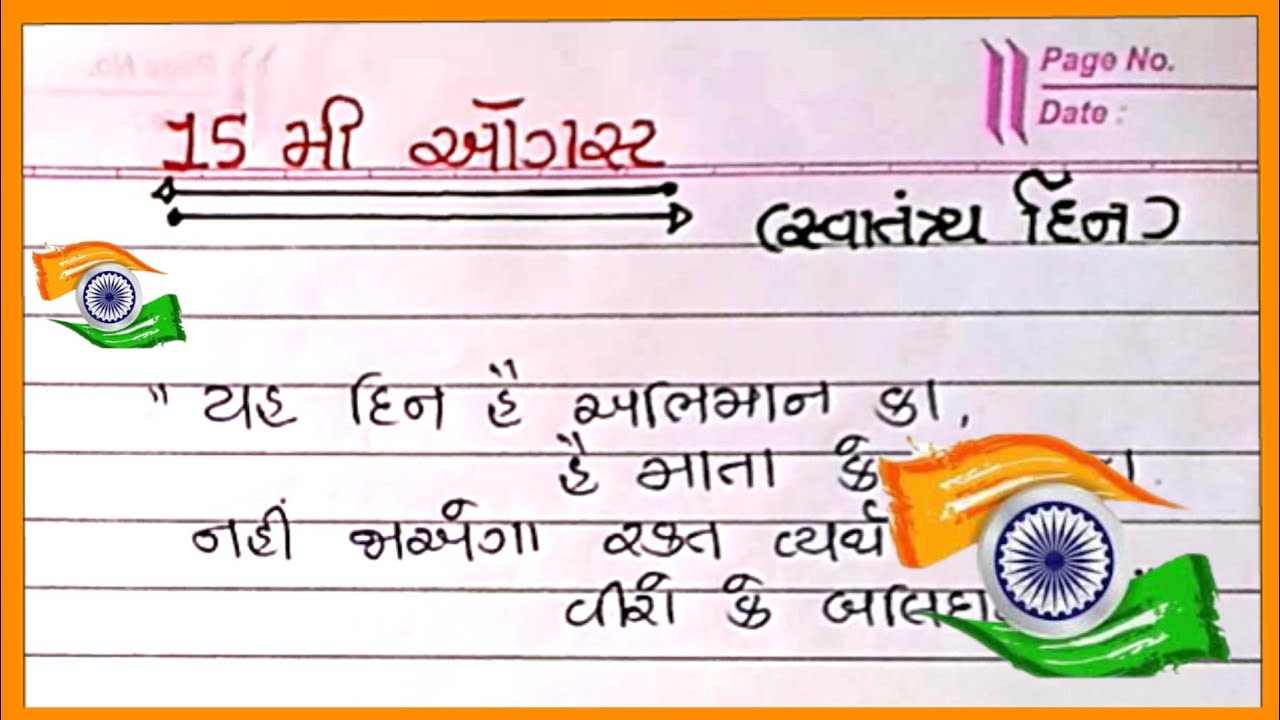 Page No.
Date :
15 મી ઑગસ્ટ
(સ્વાતંત્ર્ય દિન)
" યહ દિન હૈ અભિમાન કા,
હૈ માતા કે
નહીં જાએગા રક્ત વ્યર્થ
વીરો કે